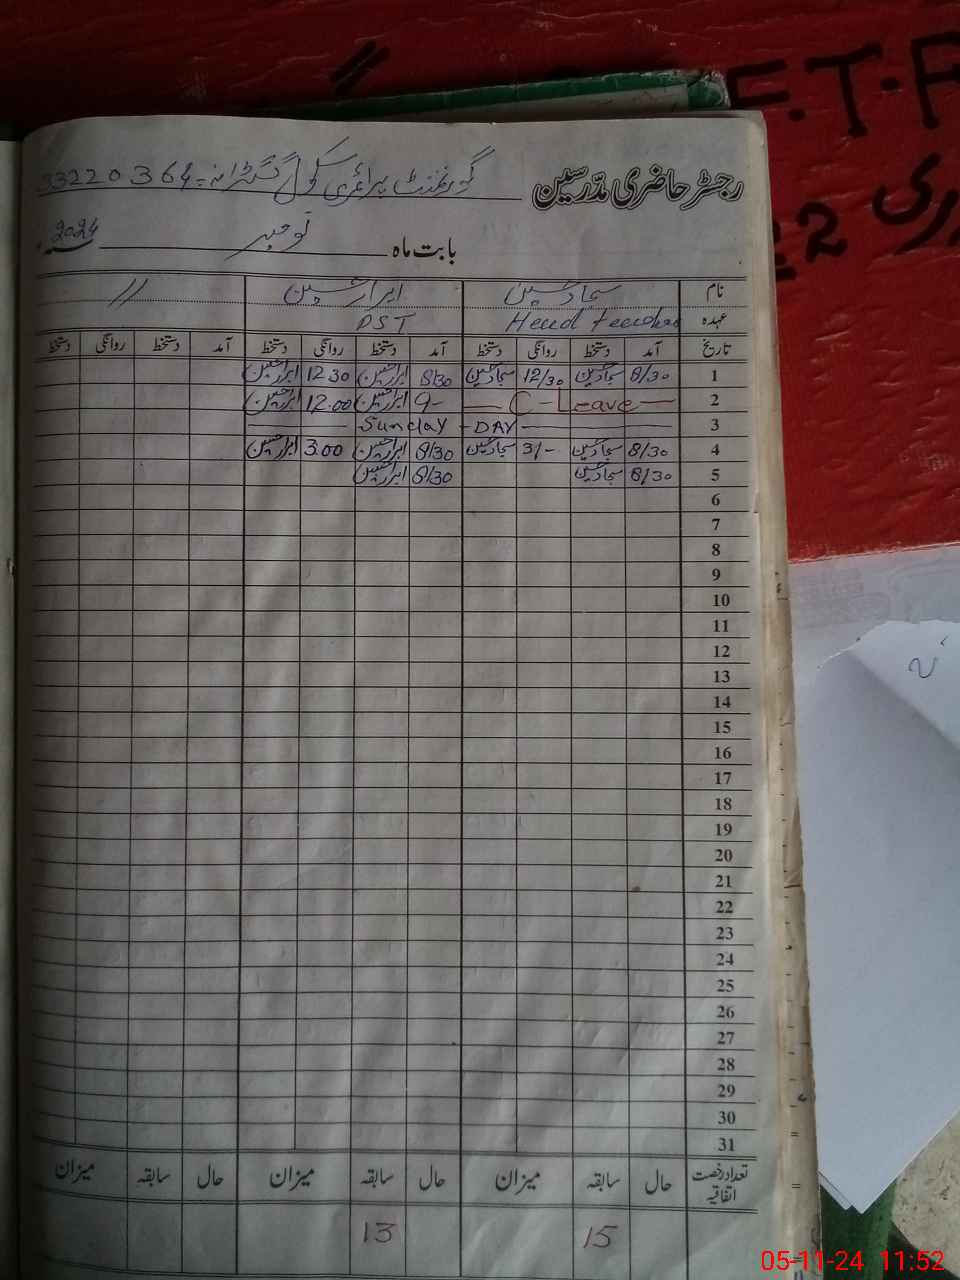 F.T.F
رجسٹر حاضری مدرسین گورنمنٹ پرائمری سکول 33220364
بابت ماہ نومبر 2024
نام سجاد حسین ابرار حسین //
عہدہ Head teacher PST
تاریخ آمد دستخط روانگی دستخط آمد دستخط روانگی دستخط آمد دستخط روانگی دستخط
1 8/30 سجاد حسین 12/30 سجاد حسین 8/30 ابرار حسین 12 30 ابرار حسین
2 C-Leave 9- ابرار حسین 12.00 ابرار حسین
3 Sunday - DAY
4 8/30 سجاد حسین 3/- سجاد حسین 8/30 ابرار حسین 3.00 ابرار حسین
5 8/30 سجاد حسین 8/30 ابرار حسین
6
7
8
9
10
11
12
13
14
15
16
17
18
19
20
21
22
23
24
25
26
27
28
29
30
31
تعداد رخصت اتفاقیہ حال سابقہ میزان حال سابقہ میزان حال سابقہ میزان
15 13
05-11-24 11:52